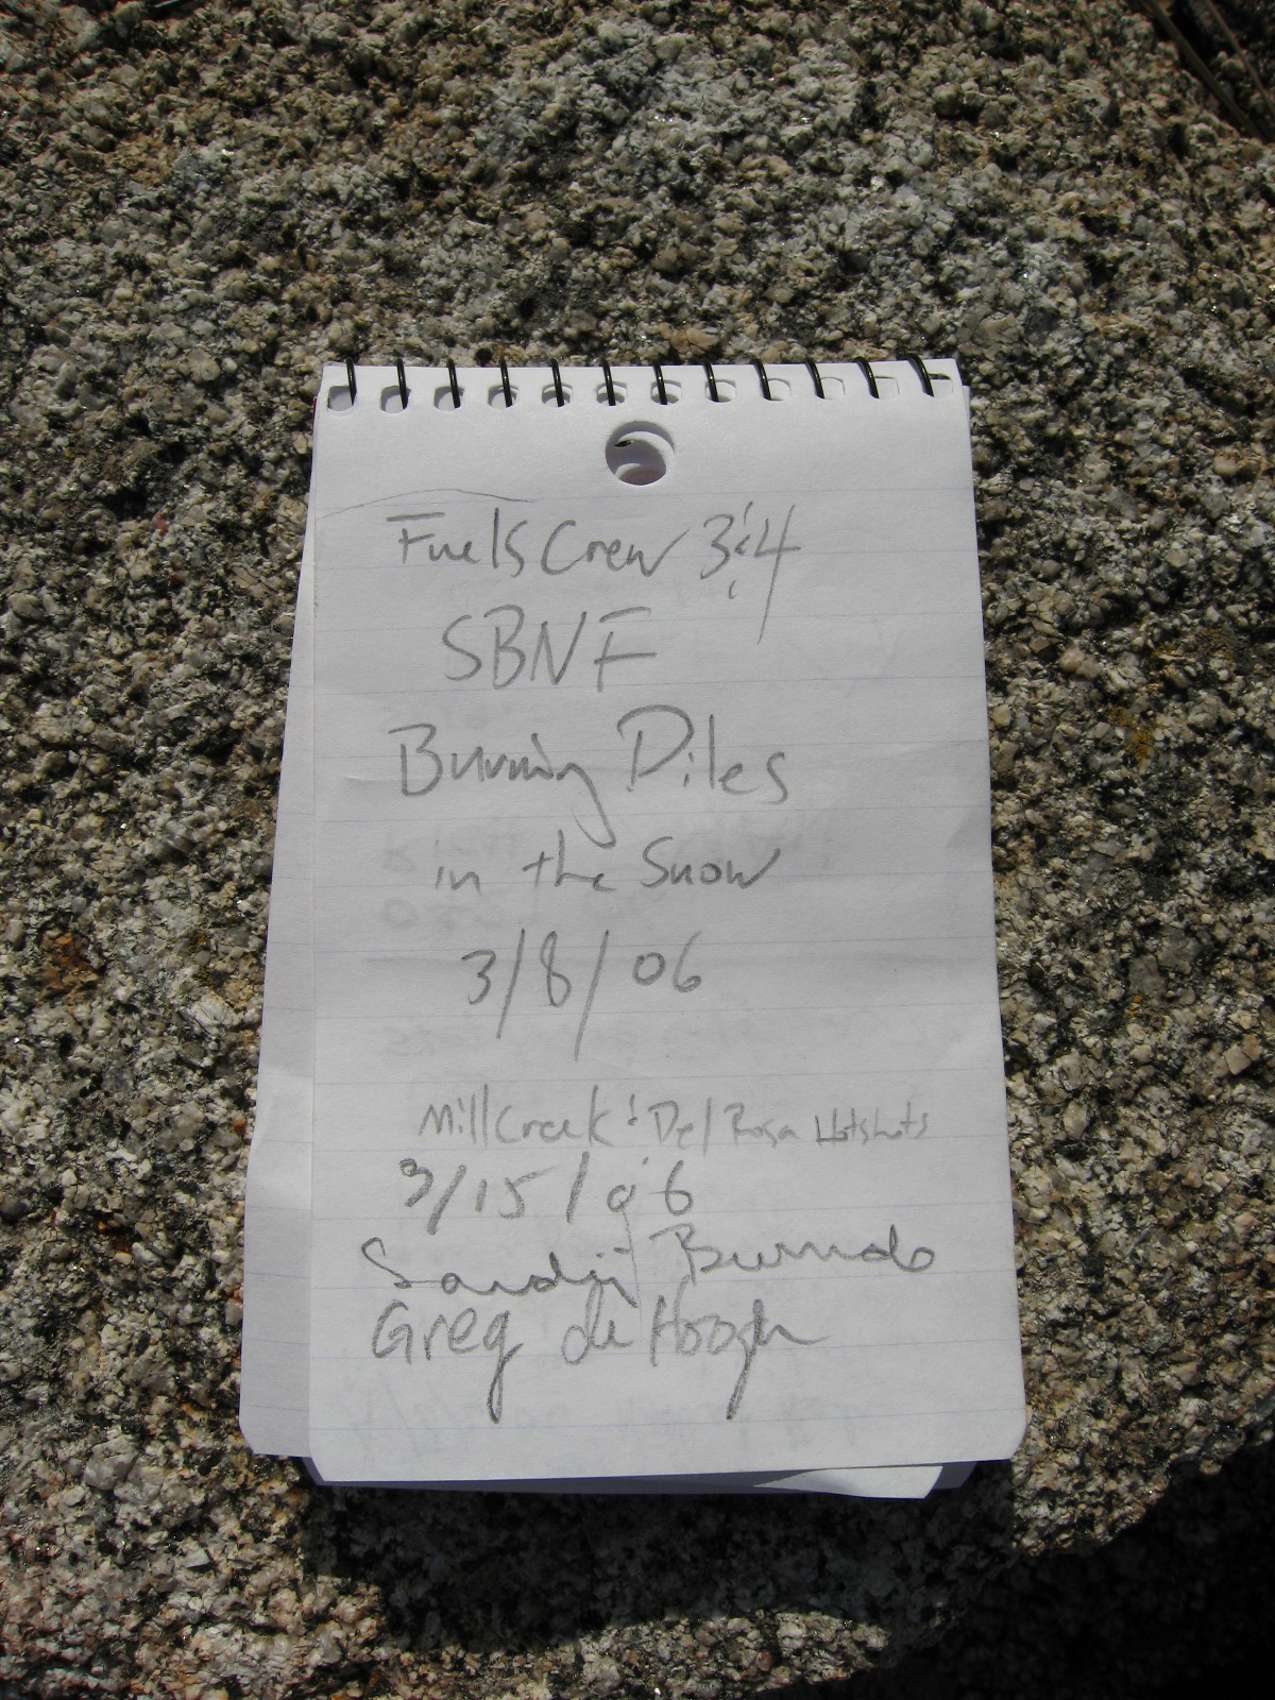 Fuels Crew 3 & 4
SBNF
Burning Piles
in the Snow
3/8/06
Mill Creek & Del Rosa Hotshots
3/15/06
Greg de Hoogh